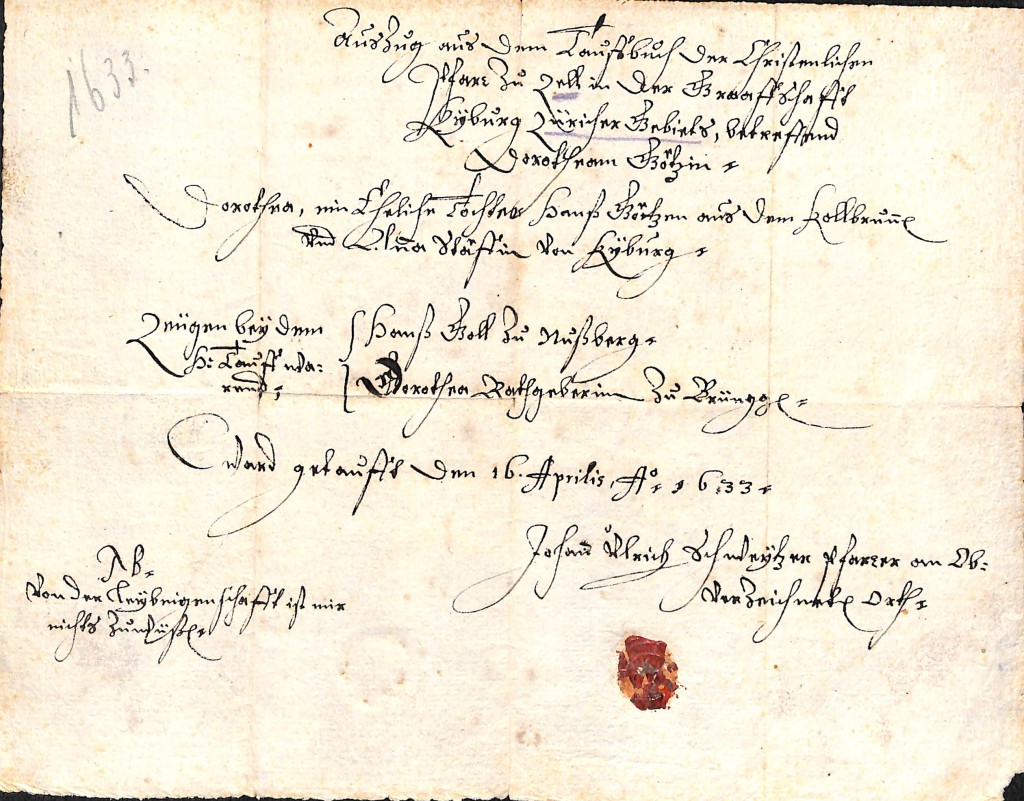 1633.
Auszug aus dem Tauffbuch der Christenlichen
Pfarr zu Zell in der Graaffschafft
Kyburg Züricher Gebiets, betreffend
Dorotheam Götzin.
Dorothea, ein Eheliche Tochter Hanß Götzen aus dem Kollbrunnen
Und Anna Stäffin von Kyburg.
Zeügen bey dem
H: Tauff wa:
rend:
Hanß Goll zu Nußberg.
Dorothea Rathgeberin zu Brünggen.
Ward getaufft den 16. Aprilis, Aº. 1633.
Johann Ulrich Schweytzer Pfarrer an Ob:
Verzeichneten Orth.
NB.
Von der Leybeigenschafft ist mir
nichts zuwüßen.